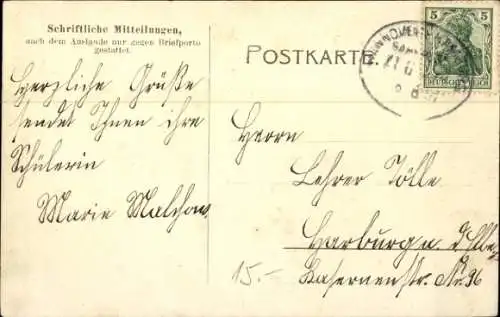 Schriftliche Mitteilungen,
nach dem Auslande nur gegen Briefporto
gestattet.
POSTKARTE
5 5
DEUTSCHES REICH
Herzliche Grüße
sendet Ihnen ihre
Schülerin
Marie Malchow
Herrn
Lehrer Tölle
Harburg a. d. Elbe
Kasernenstr. No. 36
15.-